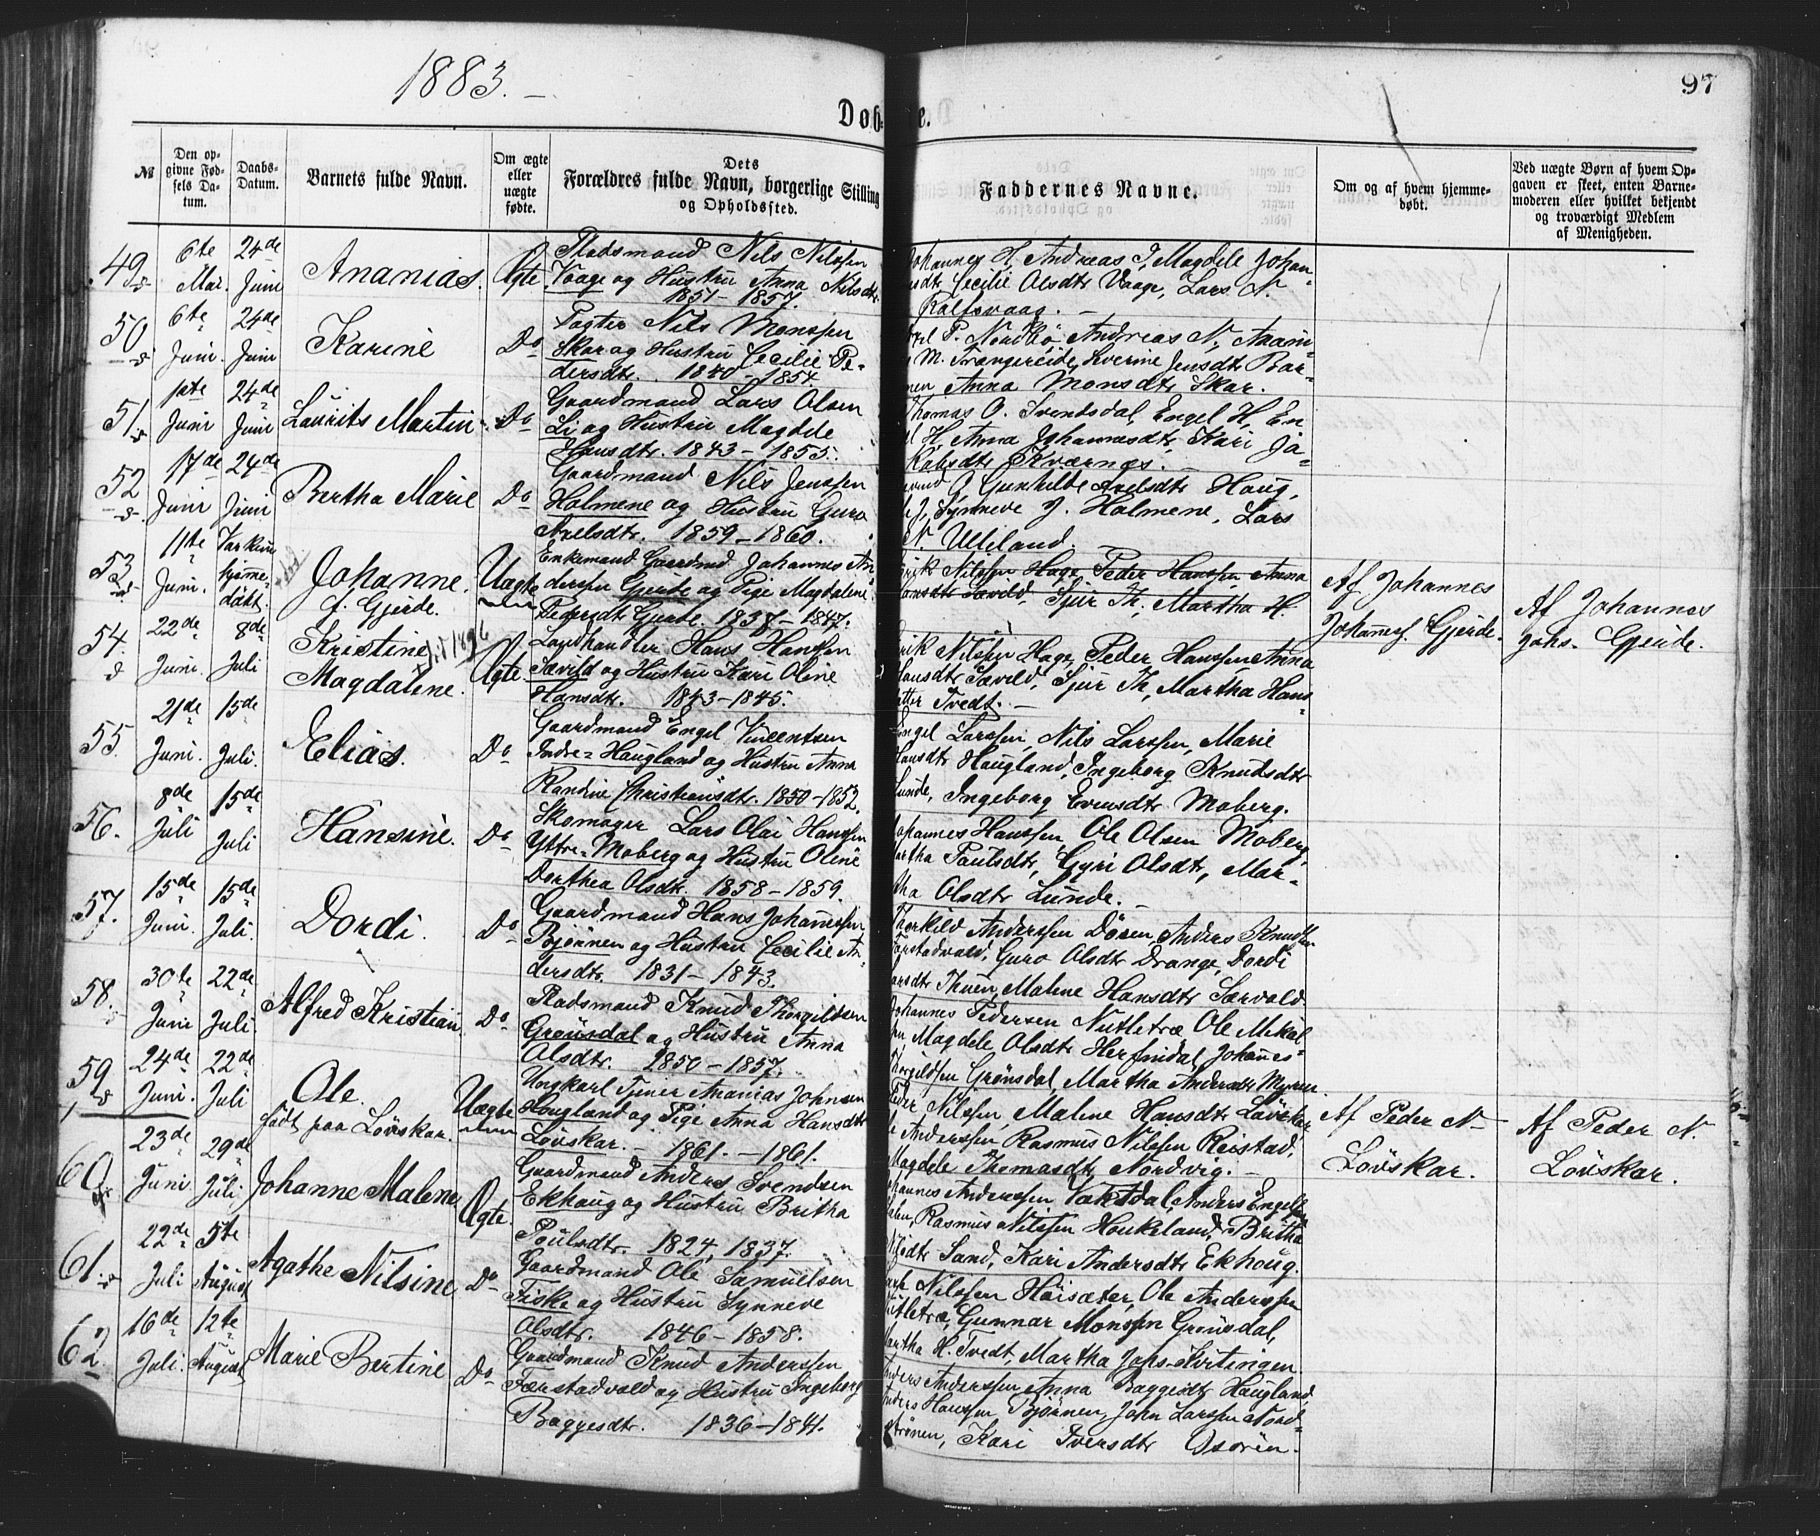 1883.
97
Døb- e.
№
Den opgivne Fødsels Datum.
Daabs-Datum.
Barnets fulde Navn.
Om ægte eller uægte fødte.
Dets Forældres fulde Navn, borgerlige Stilling og Opholdssted.
Faddernes Navne.
Om og af hvem hjemmedøbt.
Ved uægte Børn af hvem Opgaven er skeet, enten Barnemoderen eller hvilket bekjendt og troværdigt Medlem af Menigheden.
49 6te Mar. 24de Juni Ananias. Ægte
Pladsmand Nils Nilssen
Vaage og Hustru Anna Nilsdtr
1851 - 1857.
Johannes H. Andreas J, Magdele Johan-
nsdtr Cecilie Olsdtr Vaage, Lars N.
Kalfsvaag.
50 6te Juni 24de Juni Karine Do
Pagter Nils Monssen
Skar og Hustru Cecilie Pe-
dersdtr. 1840 - 1854
P. Nordbø, Andreas N, Aam-
M. Trangereide, Severine Jensdtr Bar-
men Anna Monsdtr Skar.
51. 1ste Juni 24de Juni Laurits Martin Do
Gaardmand Lars Olsen
Li og Hustru Magdele
Hansdtr. 1843 - 1855.
Thomas O. Svendsdal, Engel H, En
H, Anna Johannesdtr, Kari Ja-
kobsdtr Kværnes.
52 17de Juni 24de Juni Bertha Marie Do
Gaardmand Nils Jenssen
Holmene og Hustru Guro
Axelsdtr. 1859 - 1860.
G, Gunhilde Axelsdtr Haug,
J, Synneve J. Holmene, Lars
N. Ulleland.
53 11te Juni. Var kun hjemmedøbt. Johanne, f. Gjerde. Uægte
Enkemand Gaardmd Johannes An
derssen Gjerde og Pige Magdalene
Pedersdt Gjerde. 1837 - 1847.
Erik Nilssen Hage, Peder Hanssen Anna
Hansdt Sæveld, Sjur Th, Martha H.
Af Johannes
Johannesf. Gjerde.
Af Johannes
Johs. Gjerde.
54. 22de Juni 8de Juli Kristine
Magdalene. Ægte
Landhandler Hans Hanssen
Sæveld og Hustru Kari Oline
Hansdtr. 1843 - 1845.
Erik Nilssen Hage, Peder Hanssen Anna
Hansdtr Sæveld, Sjur Th, Martha Hans-
datter Tvedt.
55. 21de Juni. 15de Juli. Elias. Do
Gaardmand Engel Vincentsen
Indre-Haugland og Hustru Anna
Randine Christiansdtr. 1850 - 1852.
Engel Larssen, Nils Larssen, Marie
Hansdt Haugland, Ingeborg Knudsdtr
Lunde, Ingeborg Evensdtr Moberg.
56. 8de Juli 15de Juli Hansine. Do
Skomager Lars Olai Hanssen
Yttre-Moberg og Hustru Oline
Dorthea Olsdtr. 1858 - 1859.
Johannes Hanssen, Ole Olsen Moberg,
Martha Poulsdtr, Gyri Olsdt, Mar-
tha Olsdtr Lunde.
57. 15de Juni. 15de Juli. Dordi. Do
Gaardmand Hans Johannessen
Bjørnen og Hustru Cecilie An-
dersdtr. 1831 - 1843.
Thorkild Anderssen Døsen Anders Knudssen
Færstadvald, Guro Olsdtr Drange, Dordi
Larsdtr Thuen, Malene Hansdtr Særvold
58. 30te Juni 22de Juli Alfred Kristian Do
Pladsmand Knud Thorgilssen
Grønsdal og Hustru Anna
Olsdtr. 1850 - 1857.
Johannes Pedersen Nutletræ Ole Mikal
sen, Magdele Olsdtr Herfindal, Johannes
Thorgildsen Grønsdal, Martha Andersdtr Myren
59. 24de Juni. 22de Juli. Ole.
født paa Løvskar. Uægte
Ungkarl Tjener Ananias Johnsen
Haugland og Pige Anna Hansdtr
Løvskar. - 1861. - 1861.
Peder Nilssen, Malene Hansdtr Løvskar
Anderssen Rasmus Nilssen Reistad,
Magdele Thomasdtr Nordvig.
Af Peder N-
Løvskar.
Af Peder N.
Løvskar.
60 23de Juni 29de Juli Johanne Malene, Ægte.
Gaardmand Anders Svendsen
Ekhaug og Hustru Britha
Poulsdtr. 1824, 1837.
Johannes Anderssen Vaksdal, Anders Engels
Rasmus Nilssen Haukeland, Britha
Sand, Kari Andersdtr Ekhoug.
61. 22de Juli 5te August Agathe Nilsine Do
Gaardmand Ole Samuelsen
Fiske og Hustru Synneve
Olsdtr. 1846 - 1858.
Nilssen Høisæter, Ole Anderssen
Nutletræ, Gunnar Monssen Grønsdal,
Martha H. Tvedt, Martha Johs. Kvitingen
62. 16de Juli. 12te August Marie Bertine Do
Gaardmand Knud Anderssen
Færstadvald og Hustru Ingeborg
Baggesdtr. 1836 - 1841.
Anders Anderssen, Anna Baggesdtr Haugland,
Anders Hanssen Bjørnen, John Larssen Nord-
strønen, Kari Iversdtr Osøren.